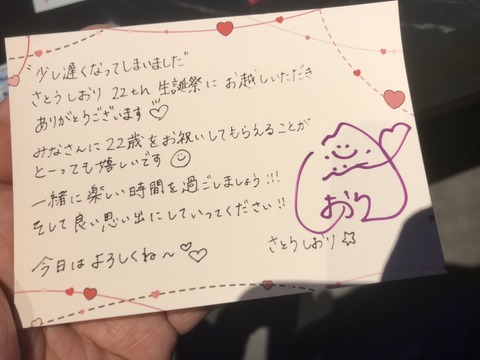 "少し遅くなってしまいました"
さとうしおり 22th 生誕祭に お越しいただき
ありがとうございます♡
みなさんに22歳をお祝いしてもらえることが
とーっても嬉しいです☺
一緒に楽しい時間を過ごしましょう!!!
そして良い思い出にしていってください!!
今日はよろしくね〜♡♡
おり
さとうしおり☆